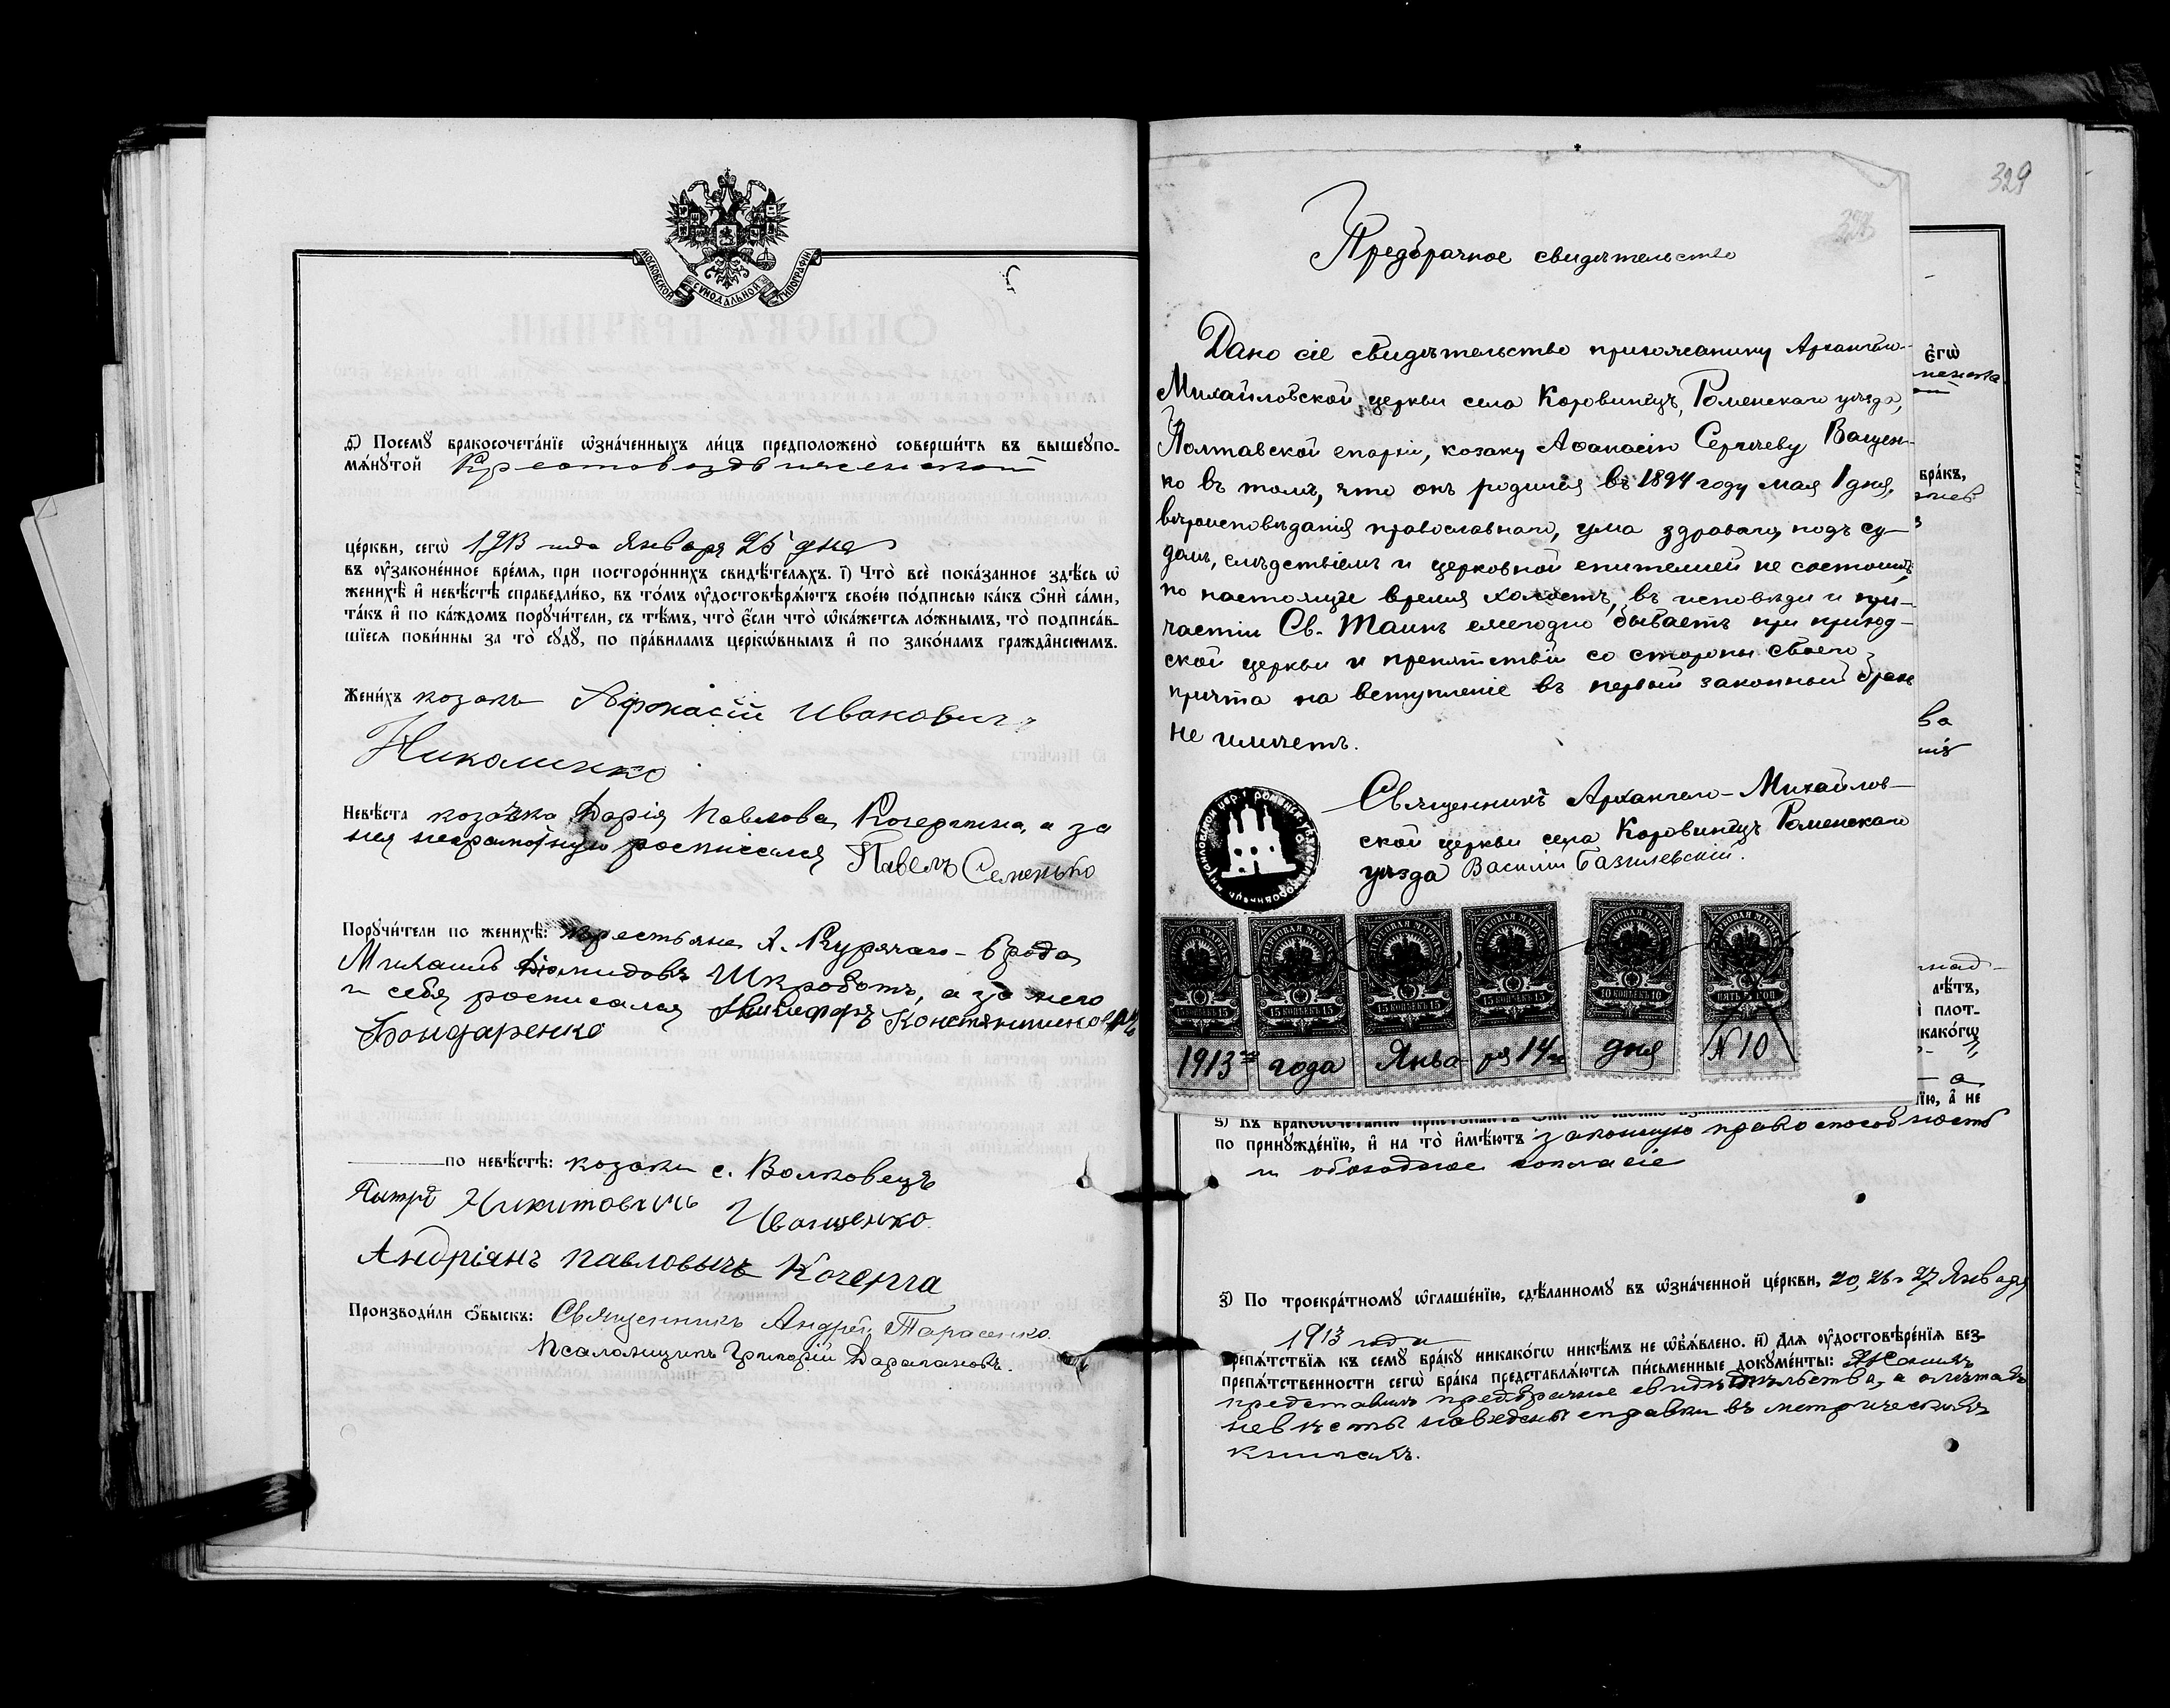 МОСКОВСКОЙ СУНОДАЛЬНОЙ ТИПОГРАФІИ
д҃) Посемꙋ̀ бракосочета́нїе ѡ҆зна́ченныхъ ли́цъ предположено̀ соверши́ть въ вышеꙋпо-
мѧ́нꙋтой Крестовоздвиженской
це́ркви, сегѡ̀ 1913 года Января 25 дня
въ ᲂу҆зако́ненное вре́мѧ, при посторо́ннихъ свидѣ́телѧхъ. і҃) Что̀ всѐ пока́занное здѣ́сь ѡ҆
женихѣ̀ и҆ невѣ́стѣ справедли́во, въ то́мъ ᲂу҆достовѣрѧ́ютъ свое́ю по́дписью ка́къ ѻ҆нѝ са́ми,
та́къ и҆ по ка́ждомъ порꙋчи́тели, съ тѣ́мъ, что̀ є҆́сли что̀ ѡ҆ка́жетсѧ ло́жнымъ, то̀ подписа́в-
шїесѧ пови́нны за то̀ сꙋдꙋ̀, по пра́виламъ церко́внымъ и҆ по зако́намъ гражда́нскимъ.
Жени́хъ козакъ Афанасій Ивановичъ
Николенко
Невѣ́ста козачка Дарія Павлова Кочергина, а за
нея неграмотную росписался Павелъ Семенько
Порꙋчи́тели по женихѣ̀: Крестьяне х. Курячаго-Брода
Михаилъ Діомидовъ Шкроботъ, а за него
и себя росписался Никифоръ Константиновичъ
Бондаренко
по невѣ́стѣ: козаки с. Волковецъ
Никитовичъ Иващенко.
Андріянъ Павловычъ Кочерга
Производи́ли ѻ҆́быскъ: Священникъ Андрей Тарасенко.
Псаломщикъ Григорій
329
Предбрачное свидѣтельство
Дано сіе свидѣтельство прихожанину Архангело-
Михайловской церкви села Коровинецъ, Роменскаго уѣзда,
Полтавской епархіи, козаку Аѳанасію Сергѣеву Ващен-
ко въ томъ, что онъ родился въ 1894 году мая 1 дня,
вѣроисповѣданія православнаго, ума здраваго, подъ су-
домъ, слѣдствіемъ и церковной епитеміей не состоитъ,
по настоящее время холостъ, въ исповѣди и при-
частіи Св. Таинъ ежегодно бываетъ при приход-
ской церкви и препятствій со стороны своего
причта на вступленіе въ первый законный бракъ
не имѣетъ.
Священникъ Архангело-Михайлов-
ской церкви села Коровинецъ Роменскаго
уѣзда Василій Базилевскій.
ГЕРБОВАЯ МАРКА
15 КОПѢЕКЪ 15
15 КОПѢЕКЪ 15
15 КОПѢЕКЪ 15
15 КОПѢЕКЪ 15
10 КОПѢЕКЪ 10
ПЯТЬ 5 КОП
1913го года Янва ря 14го дня №10
є҆гѡ̀
бра́къ,
лѣ́тъ,
плот-
никако́гѡ
їю, а҆ не
по принꙋжде́нїю, и҆ на то̀ и҆мѣ́ютъ законную правоспособность
и обоюдное согласіе
з҃) По троекра́тномꙋ ѡ҆глаше́нїю, сдѣ́ланномꙋ въ ѡ҆зна́ченной це́ркви, 20, 26 и 27 Января
1913 года
препѧ́тствїѧ къ семꙋ̀ бра́кꙋ никако́гѡ никѣ́мъ не ѡ҆б̾ѧ́влено. и҃) Длѧ ᲂу҆достовѣре́нїѧ без-
препѧ́тственности сегѡ̀ бра́ка представлѧ́ютсѧ пи́сьменные докꙋме́нты: Женихъ
представилъ предбрачное свидѣтельство, а о лѣтахъ
невѣсты наведены справки въ метрическихъ
книгахъ.